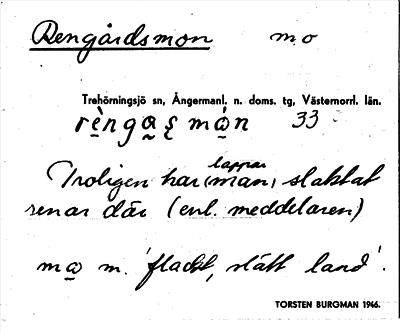 Rengårdsmon mo
Trehörningsjö sn, Ångermanl. n. doms. tg, Västernorrl. län.
33
lappar
Troligen har (man) slaktat
renar där (enl. meddelaren)
m. 'flackt, slätt land'.
TORSTEN BURGMAN 1946.